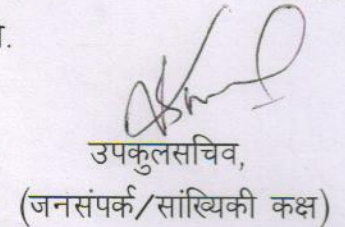 उपकुलसचिव,
(जनसंपर्क/सांख्यिकी कक्ष)